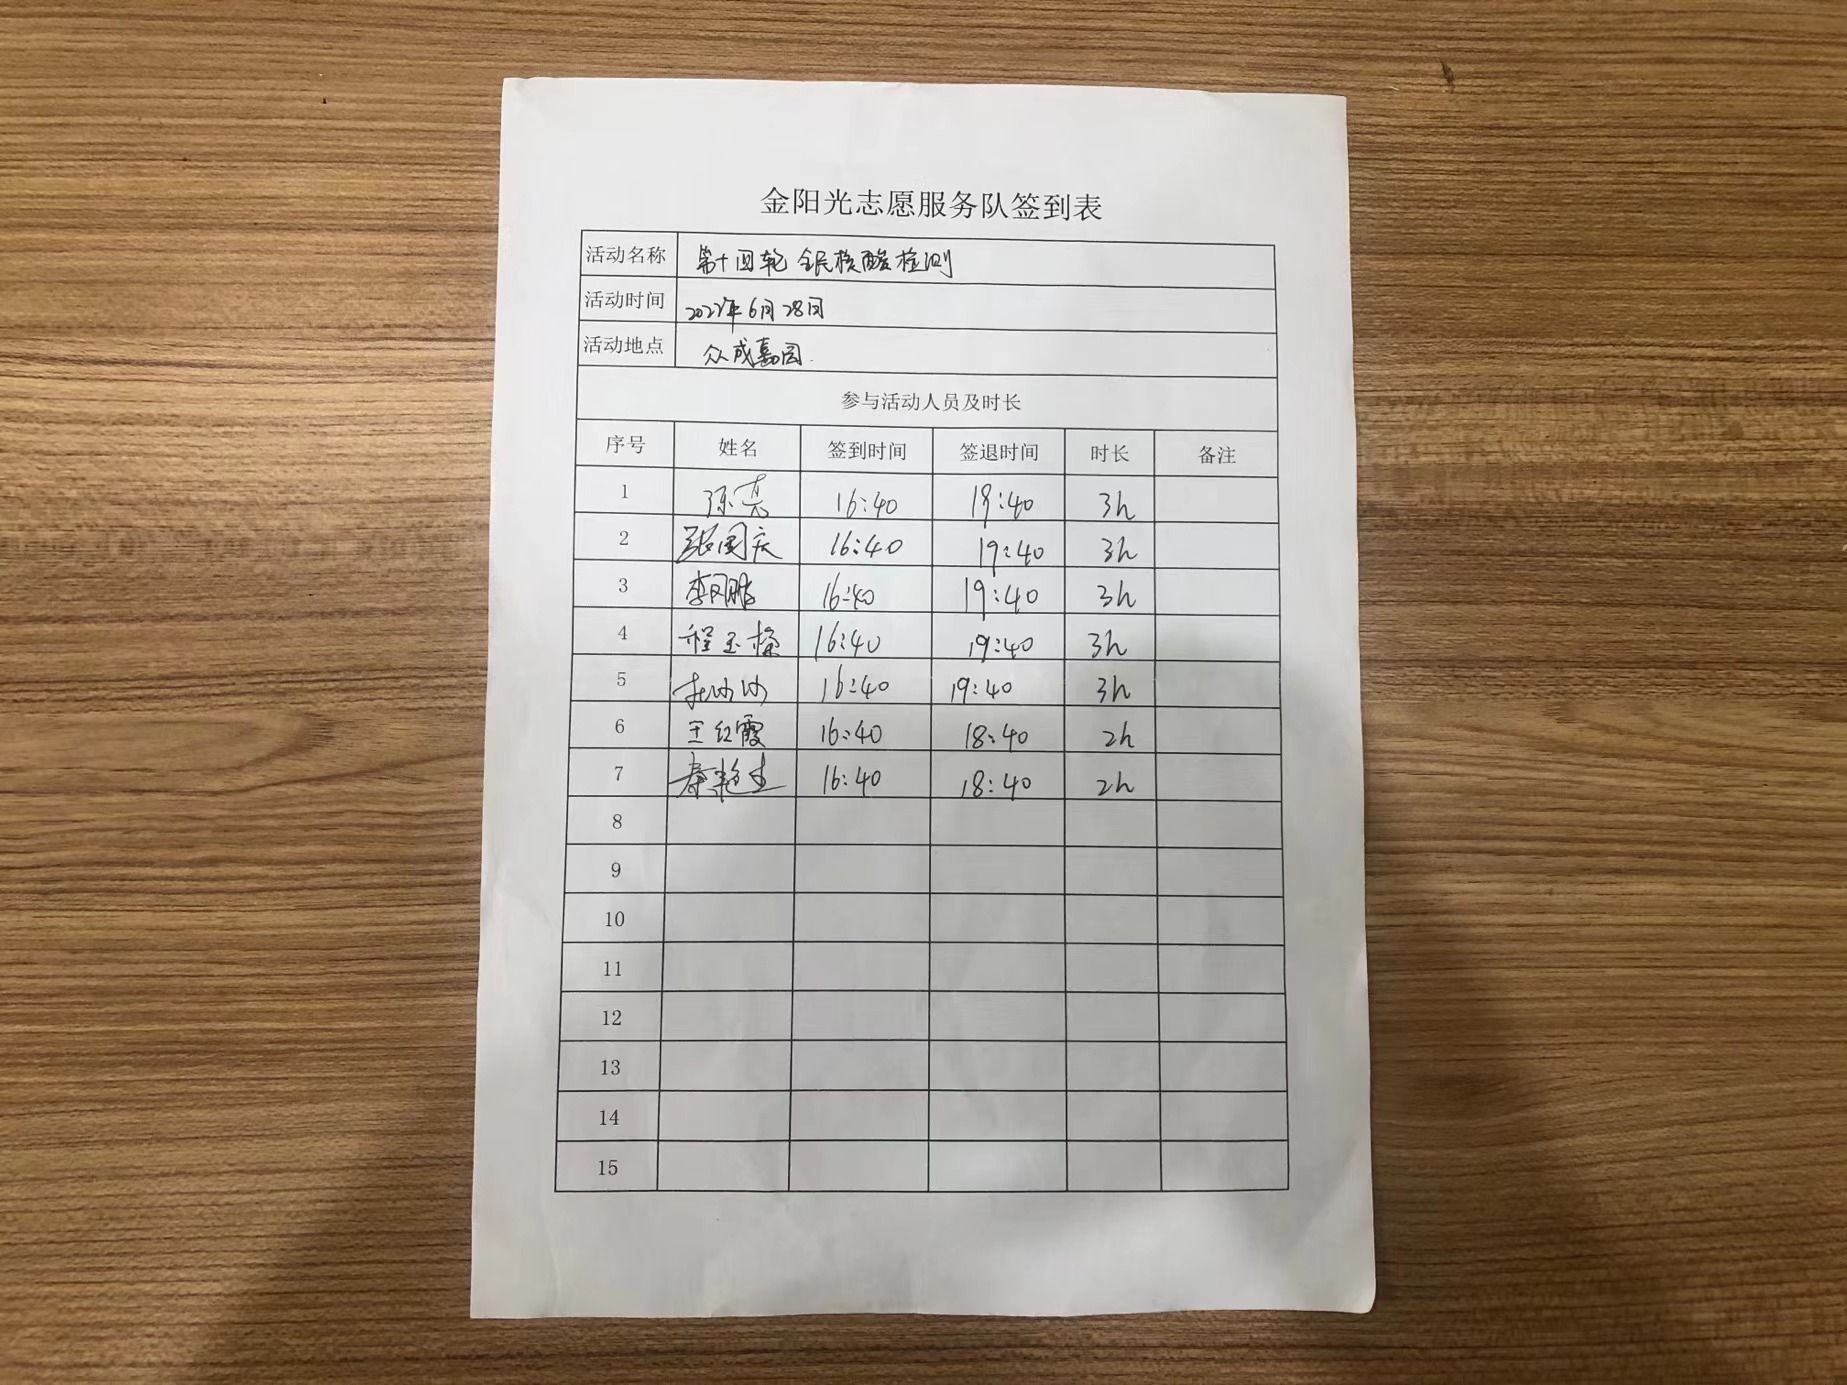 金阳光志愿服务队签到表
活动名称 第十四轮全民核酸检测
活动时间 2022年6月28日
活动地点 众成嘉园
参与活动人员及时长
序号 姓名 签到时间 签退时间 时长 备注
1 陈亮 16:40 19:40 3h
2 张国庆 16:40 19:40 3h
3 李鹏 16:40 19:40 3h
4 程玉 16:40 19:40 3h
5 16:40 19:40 3h
6 王红霞 16:40 18:40 2h
7 秦 16:40 18:40 2h
8
9
10
11
12
13
14
15